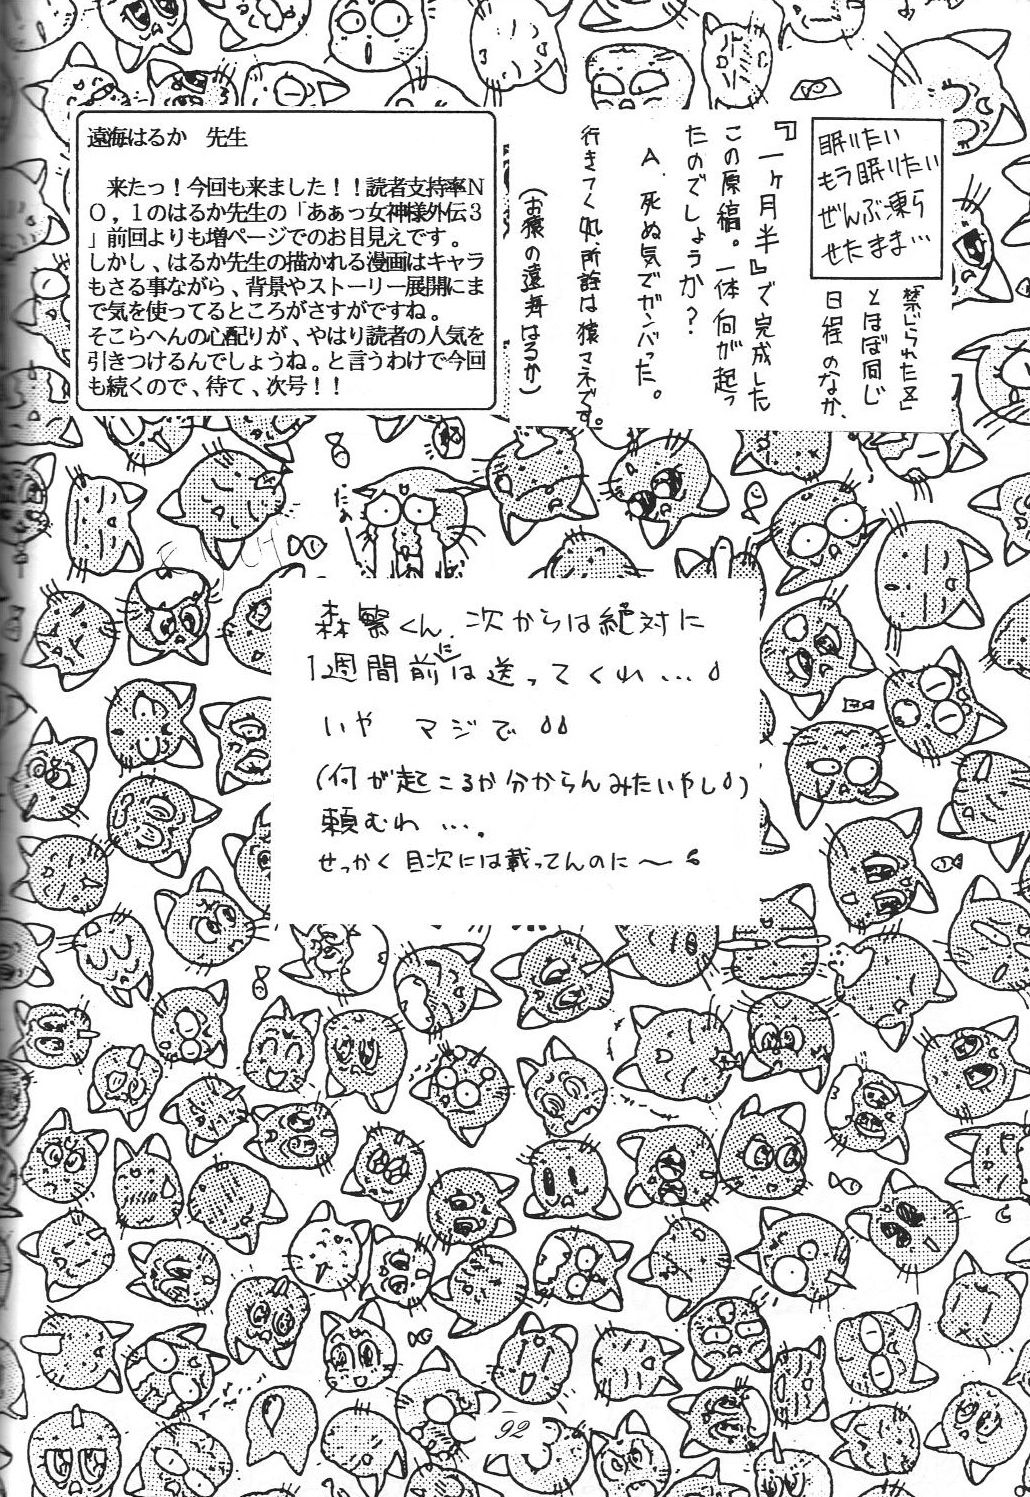 遠海はるか　先生
　来たっ！今回も来ました！！読者支持率Ｎ
Ｏ，１のはるか先生の「あぁっ女神様外伝３
」前回よりも増ページでのお目見えです。
しかし、はるか先生の描かれる漫画はキャラ
もさる事ながら、背景やストーリー展開にま
で気を使ってるところがさすがですね。
そこらへんの心配りが、やはり読者の人気を
引きつけるんでしょうね。と言うわけで今回
も続くので、待て、次号！！
眠りたい
もう眠りたい
ぜんぶ凍ら
せたまま…
「禁じられた区」
とほぼ同じ
日程のなか、
『一ヶ月半』で完成した
この原稿。一体何が起っ
たのでしょうか？
A. 死ぬ気でガンバった。
行きてく処所詮は猿マネです。
（お猿の遠海はるか）
森繁くん、次からは絶対に
1週間前には送ってくれ…
いや　マジで
（何が起こるか分からんみたいやし）
頼むわ….
せっかく目次には載ってんのに〜
92